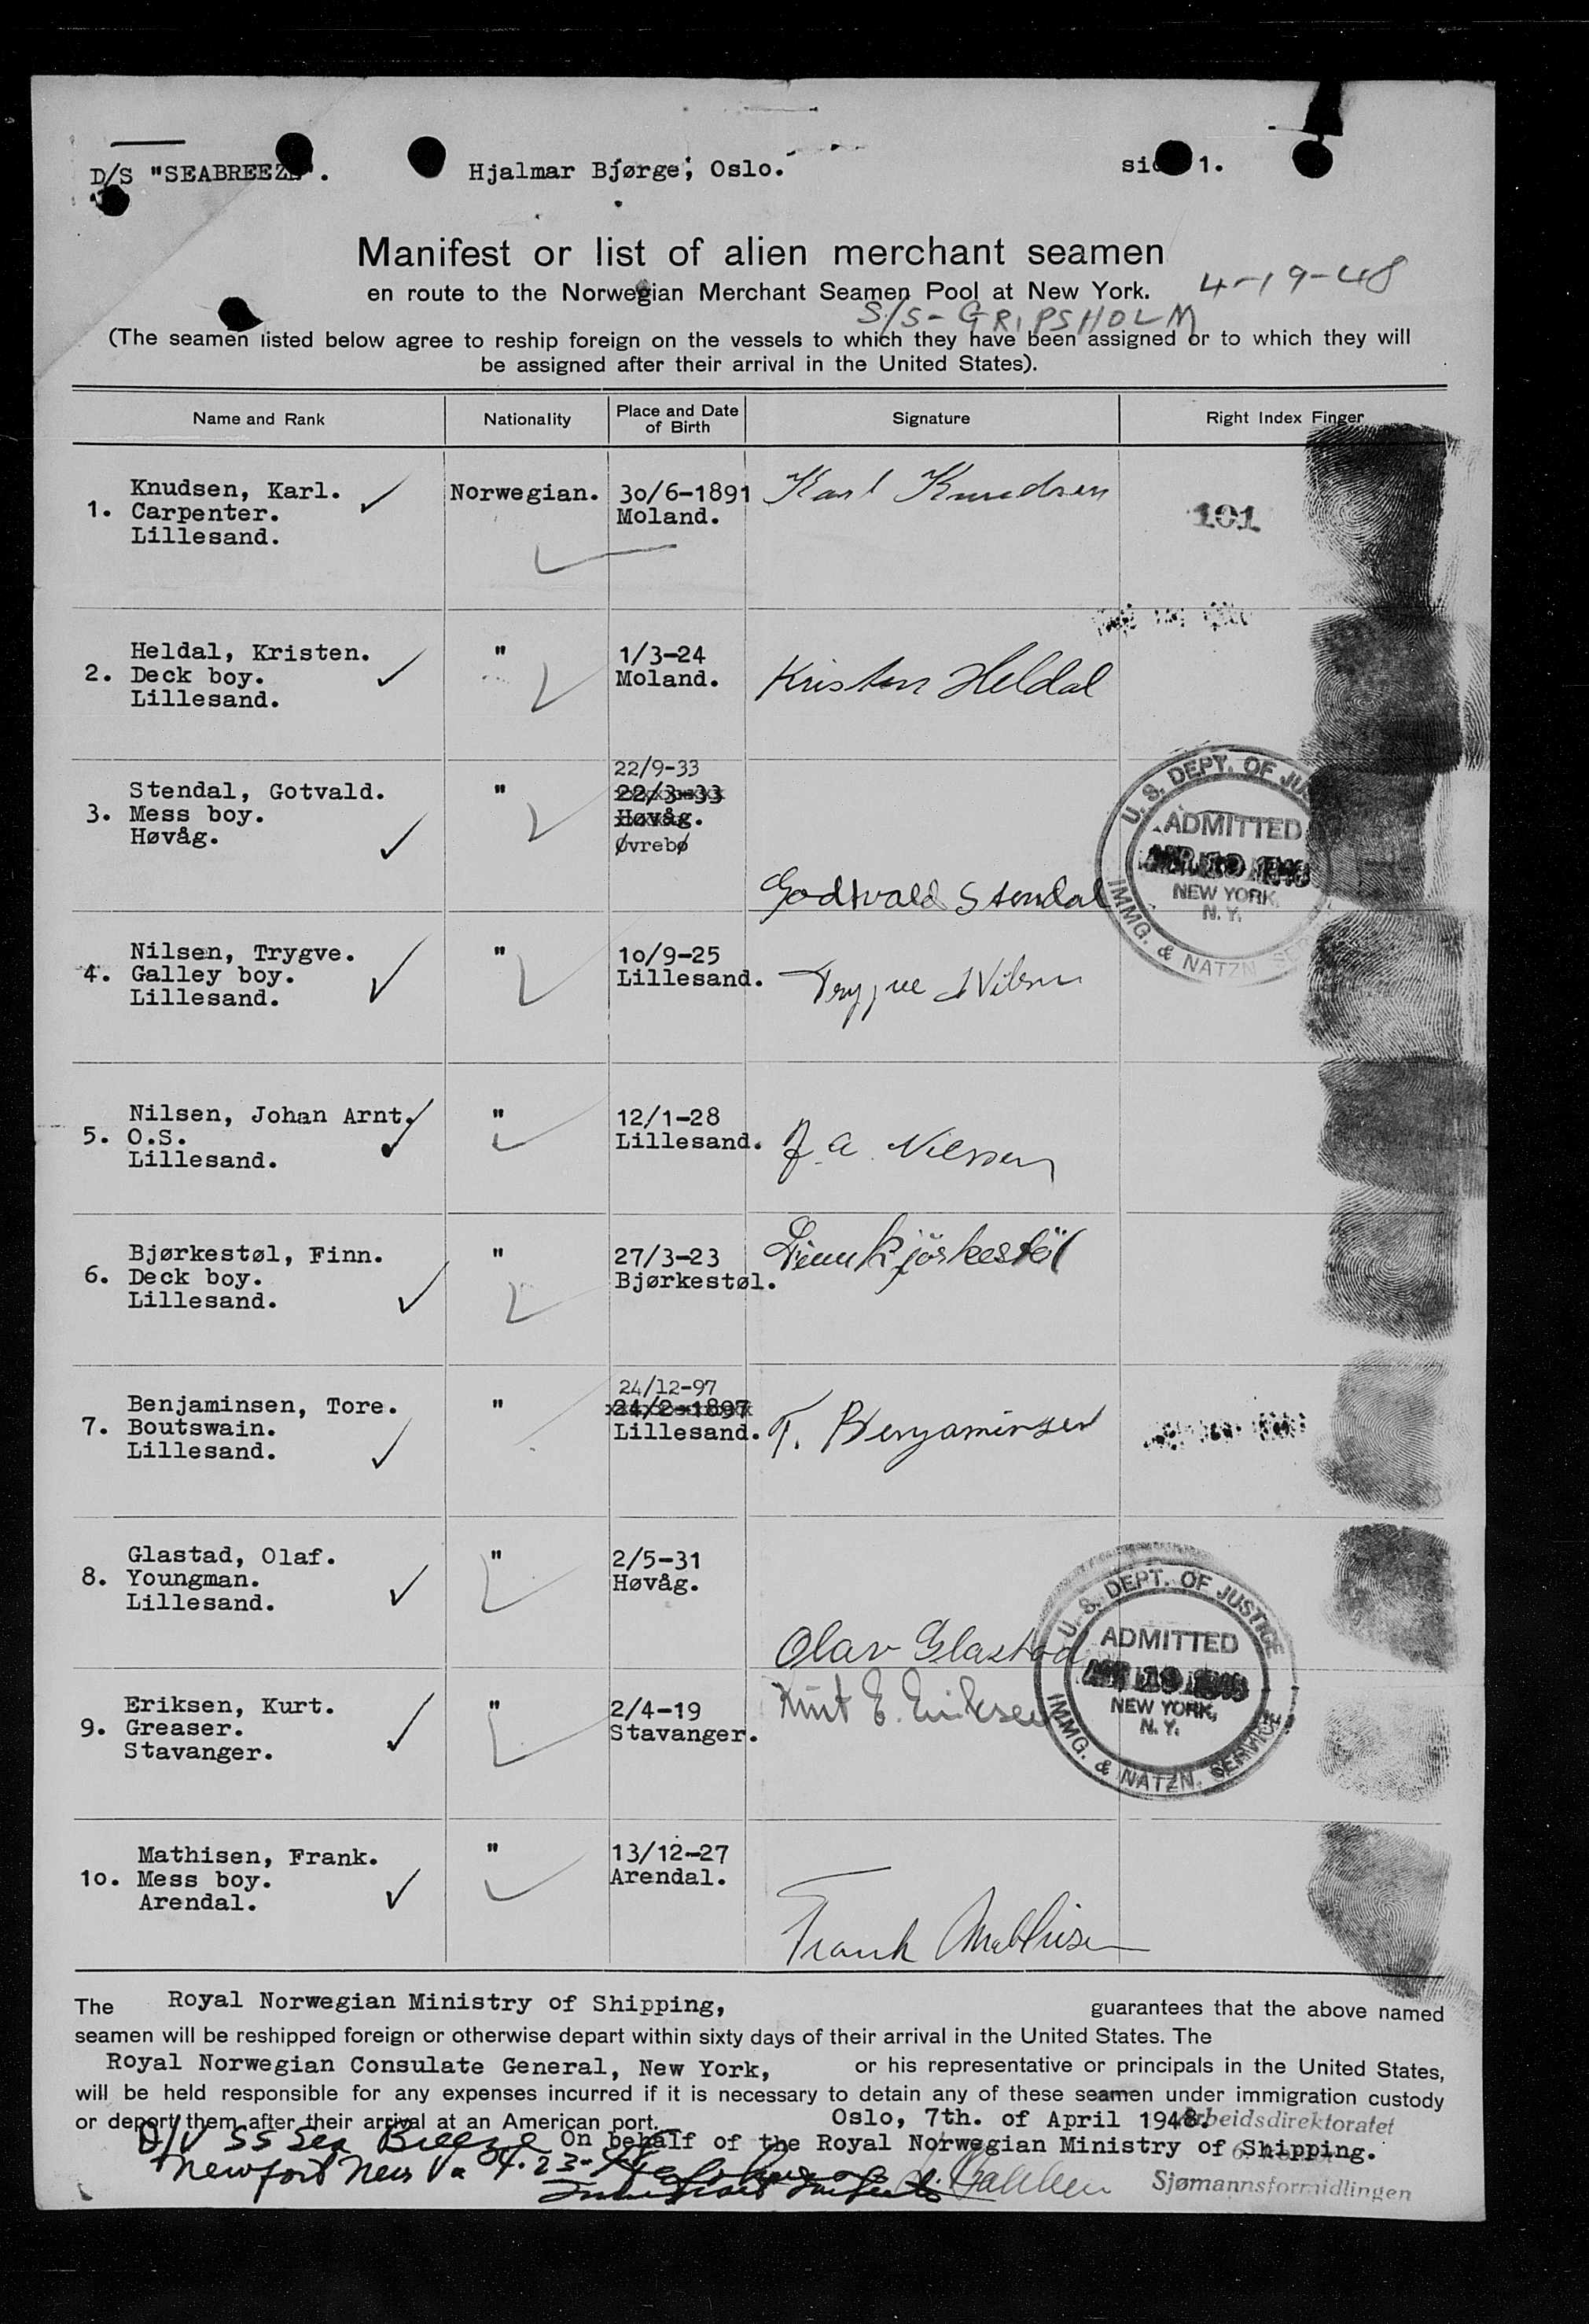 D/S "SEABREEZE". Hjalmar Bjørge, Oslo. side 1.
Manifest or list of alien merchant seamen
en route to the Norwegian Merchant Seamen Pool at New York. 4-19-48
S/S - GRIPSHOLM
(The seamen listed below agree to reship foreign on the vessels to which they have been assigned or to which they will
be assigned after their arrival in the United States).
Name and Rank Nationality Place and Date of Birth Signature Right Index Finger
Knudsen, Karl. Norwegian. 30/6-1891 Karl Knudsen
1. Carpenter. Moland. 101
Lillesand.
Heldal, Kristen. " 1/3-24
2. Deck boy. Moland. Kristen Heldal
Lillesand.
22/9-33
Stendal, Gotvald. " 22/3-33
3. Mess boy. Høvåg.
Høvåg. Øvrebø
Godtvald Stendal
U. S. DEPT. OF JUS
ADMITTED
NEW YORK,
N. Y.
IMMG. & NATZN. SE
Nilsen, Trygve. " 10/9-25
4. Galley boy. Lillesand. Trygve Nilsen
Lillesand.
Nilsen, Johan Arnt. " 12/1-28
5. O.S. Lillesand. J. A. Nilssen
Lillesand.
Bjørkestøl, Finn. " 27/3-23 Finn Bjørkestøl
6. Deck boy. Bjørkestøl.
Lillesand.
24/12-97
Benjaminsen, Tore. " 24/2-1897
7. Boutswain. Lillesand. T. Benjaminsen
Lillesand.
Glastad, Olaf. " 2/5-31
8. Youngman. Høvåg.
Lillesand.
Olav Glastad
U. S. DEPT. OF JUSTICE
ADMITTED
NEW YORK,
N. Y.
IMMG. & NATZN. SERVICE
Eriksen, Kurt. " 2/4-19 Kurt E. Eriksen
9. Greaser. Stavanger.
Stavanger.
Mathisen, Frank. " 13/12-27
10. Mess boy. Arendal.
Arendal.
Frank Mathisen
The Royal Norwegian Ministry of Shipping, guarantees that the above named
seamen will be reshipped foreign or otherwise depart within sixty days of their arrival in the United States. The
Royal Norwegian Consulate General, New York, or his representative or principals in the United States,
will be held responsible for any expenses incurred if it is necessary to detain any of these seamen under immigration custody
or deport them after their arrival at an American port. Oslo, 7th. of April 1948. Arbeidsdirektoratet
D/V SS Sea Breeze On behalf of the Royal Norwegian Ministry of Shipping.
Newport News Va 4-23-
Immigrant Inspector
Sjømannsformidlingen